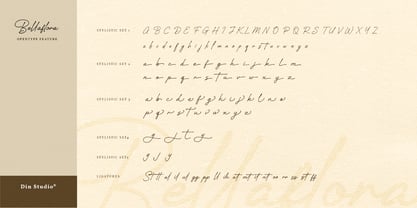 Bellaflora
OPENTYPE FEATURE
Din Studio®
STYLISTIC SET 1
A B C D E F G H I J K L M N O P Q R S T U V W X Y Z
a b c d e f g h i j k l m n o p q r s t u v w x y z
STYLISTIC SET 2
a b c d e f g h i j k l m
n o p q r s t u v w x y z
STYLISTIC SET 3
a b c d e f g h i j k l m n o
p q r s t u v w x y z
STYLISTIC SET 4
STYLISTIC SET 5
LIGATURES
Bellaflora